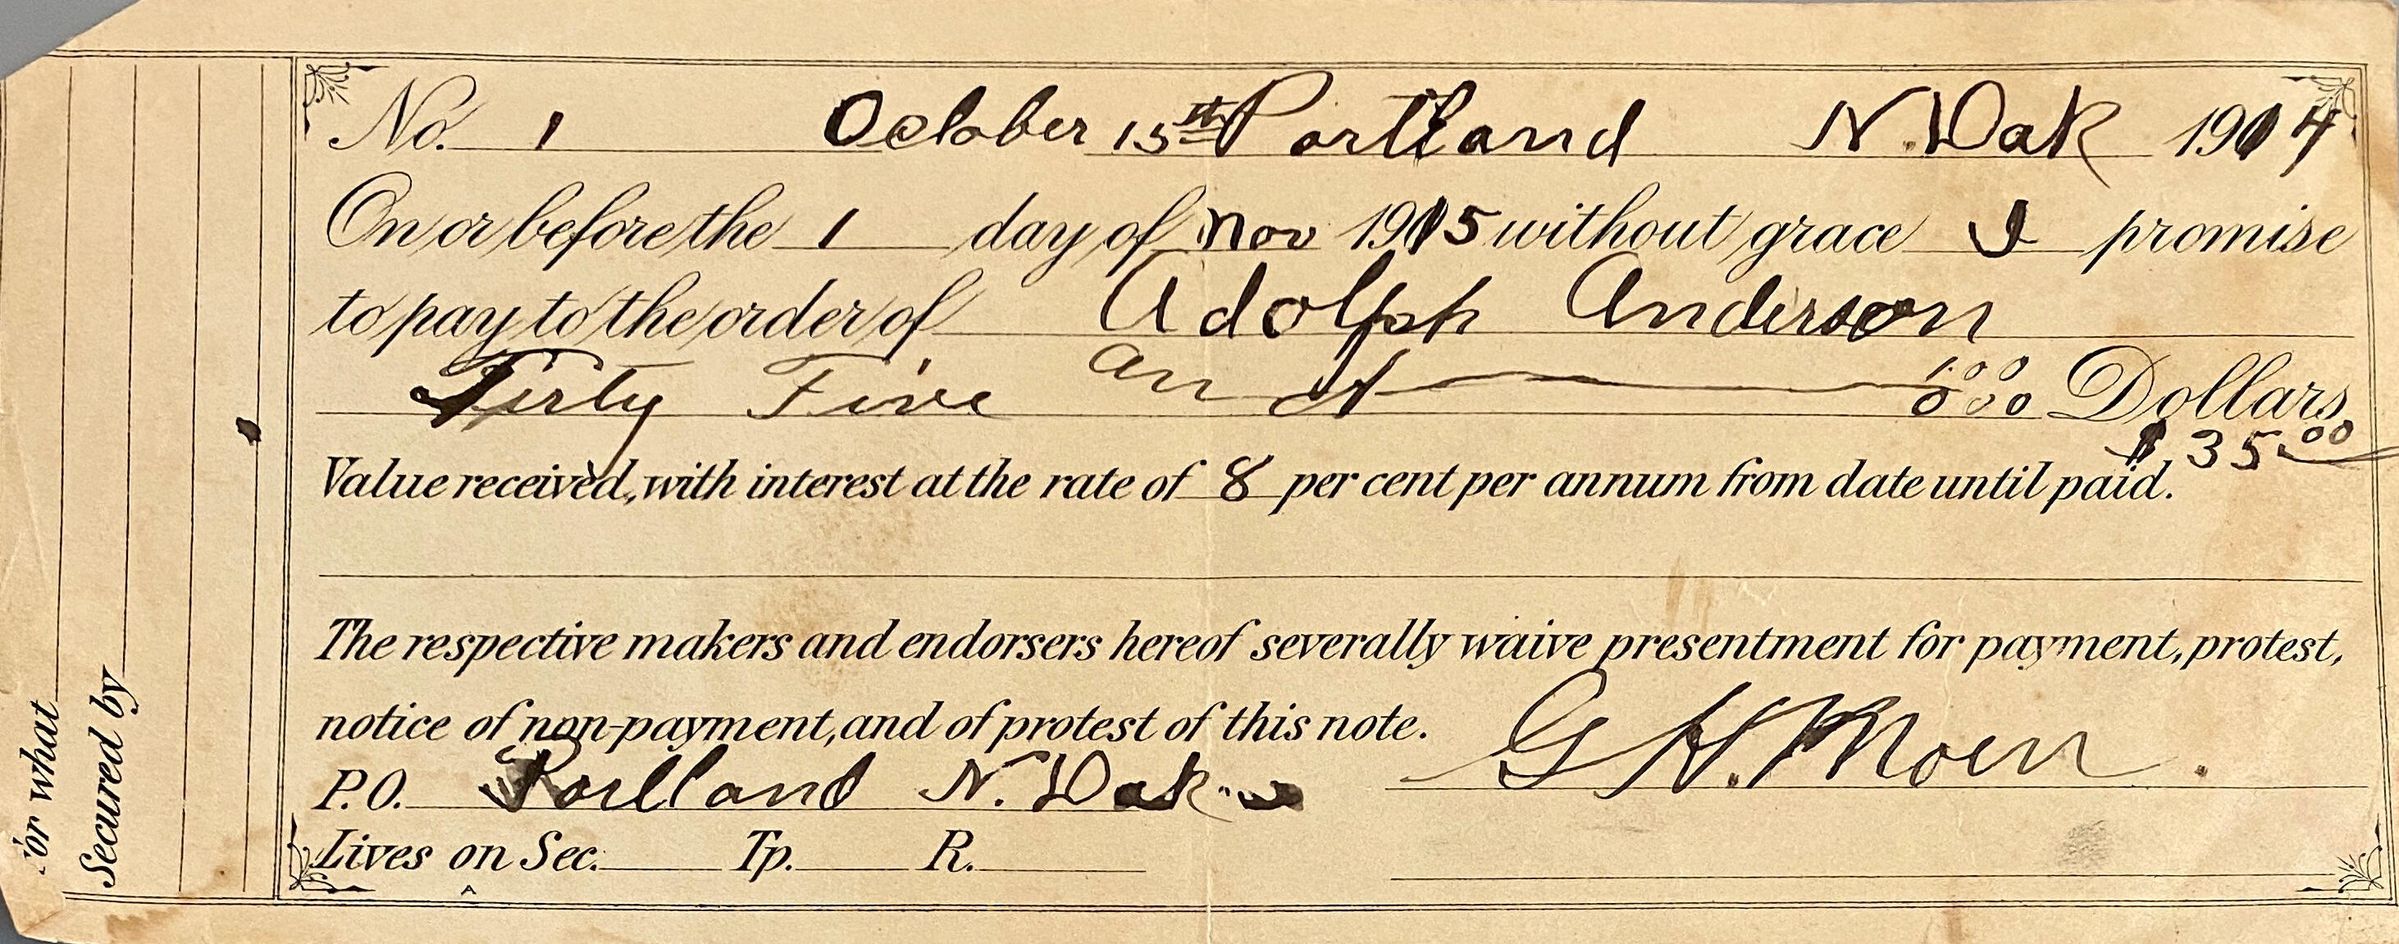 No. 1 October 15th Portland N. Dak 1914
On or before the 1 day of Nov 1915 without grace I promise
to pay to the order of Adolph Anderson
Tirty Five an d 00/000 Dollars
$35.00
Value received, with interest at the rate of 8 per cent per annum from date until paid.
The respective makers and endorsers hereof severally waive presentment for payment, protest,
notice of non-payment, and of protest of this note.
G H. Moen.
P.O. Portland N. Dak
Lives on Sec. Tp. R.
For what
Secured by